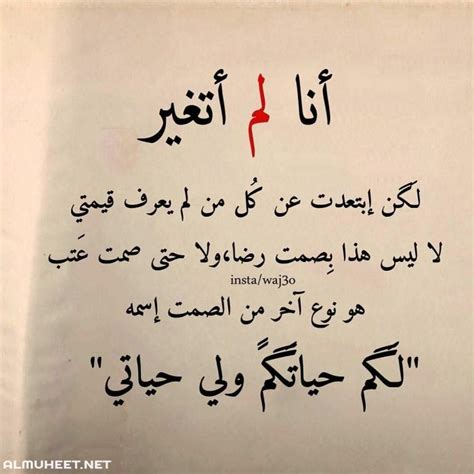 أنا لم أتغير
لَگن إبتعدت عن كُل من لم يعرف قيمتي
لا ليس هذا بِصمت رضا،ولا حتى صمت عَتب
insta/waj3o
هو نوع آخر من الصمت إسمه
"لَگم حياتَگمً ولي حياتي"
ALMUHEET.NET